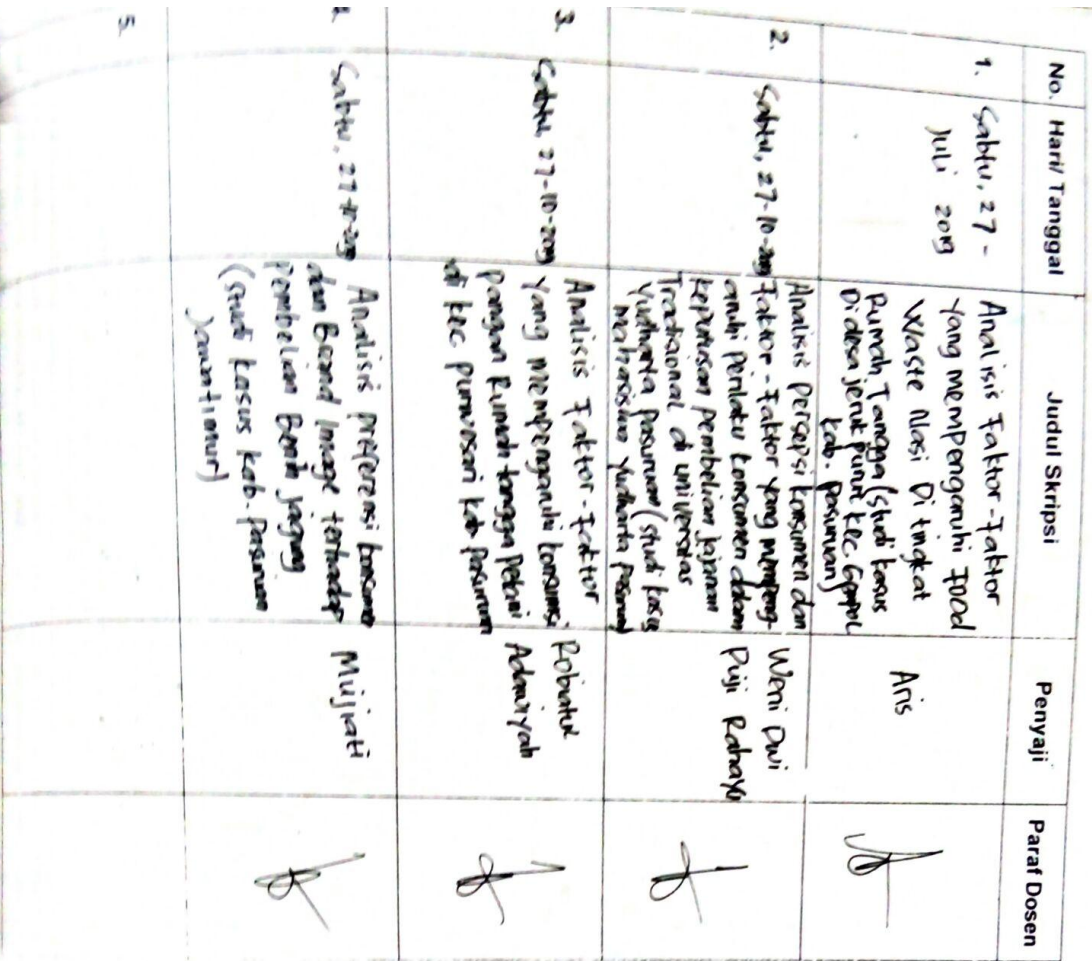 No. Hari/ Tanggal Judul Skripsi Penyaji Paraf Dosen
1. Sabtu, 27 -
Juli 2019
Analisis Faktor-Faktor
yang mempengaruhi Food
Waste Nasi Di tingkat
Rumah Tangga (Studi kasus
Di desa jeruk purut kec Gempol
kab. pasuruan)
Aris
2. Sabtu, 27-10-2019
Analisis persepsi konsumen dan
Faktor-Faktor yang mempeng-
aruhi perilaku konsumen dalam
keputusan pembelian jajanan
Tradisional di universitas
yudharta pasuruan (studi kasus
mahasiswa yudharta pasuruan)
Weni Dwi
Puji Rahayu
3. Sabtu, 27-10-2019
Analisis Faktor-Faktor
yang mempengaruhi konsumsi
pangan Rumah tangga Petani
di kec purwosari kab pasuruan
Robiatul
Adawiyah
Sabtu, 27-10-2019
Analisis preferensi konsumen
dan Brand Image terhadap
Pembelian Benih jagung
(studi kasus kab. Pasuruan
Jawatimur)
Mujiati
5.